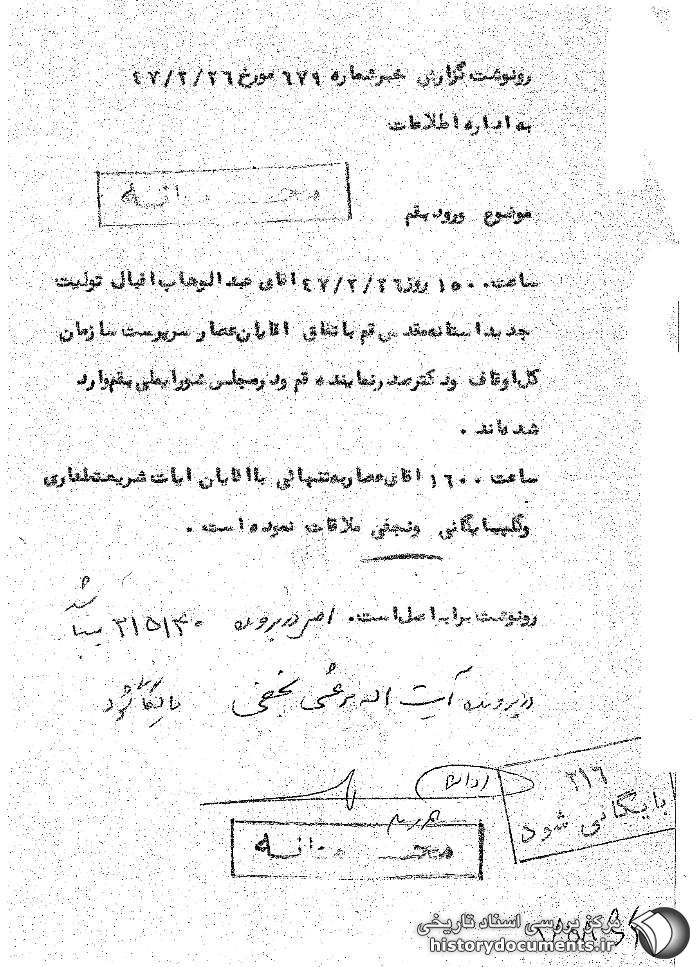 رونوشت گزارش خبر شماره ۶۷۹ مورخ ۴۷/۲/۲۶
به اداره اطلاعات
محرمانه
موضوع ورود بقم
ساعت ۱۵۰۰ روز ۴۷/۲/۲۶ اقای عبدالوهاب اقبال تولیت
جدید استانه مقدس قم باتفاق اقایان عصار سرپرست سازمان
کل اوقاف و دکتر صدر نماینده قم در مجلس شورایملی بقم وارد
شده اند .
ساعت ۱۶۰۰ اقای عصار به تنهائی با اقایان ایات شریعتمداری
و گلپایگانی و نجفی ملاقات نموده است .
رونوشت برابر اصل است . اصل در پرونده
در پرونده آیت اله مرعشی نجفی بایگانی شود
محرمانه
۳۱۶
بایگانی شود
مرکز بررسی اسناد تاریخی
historydocuments.ir